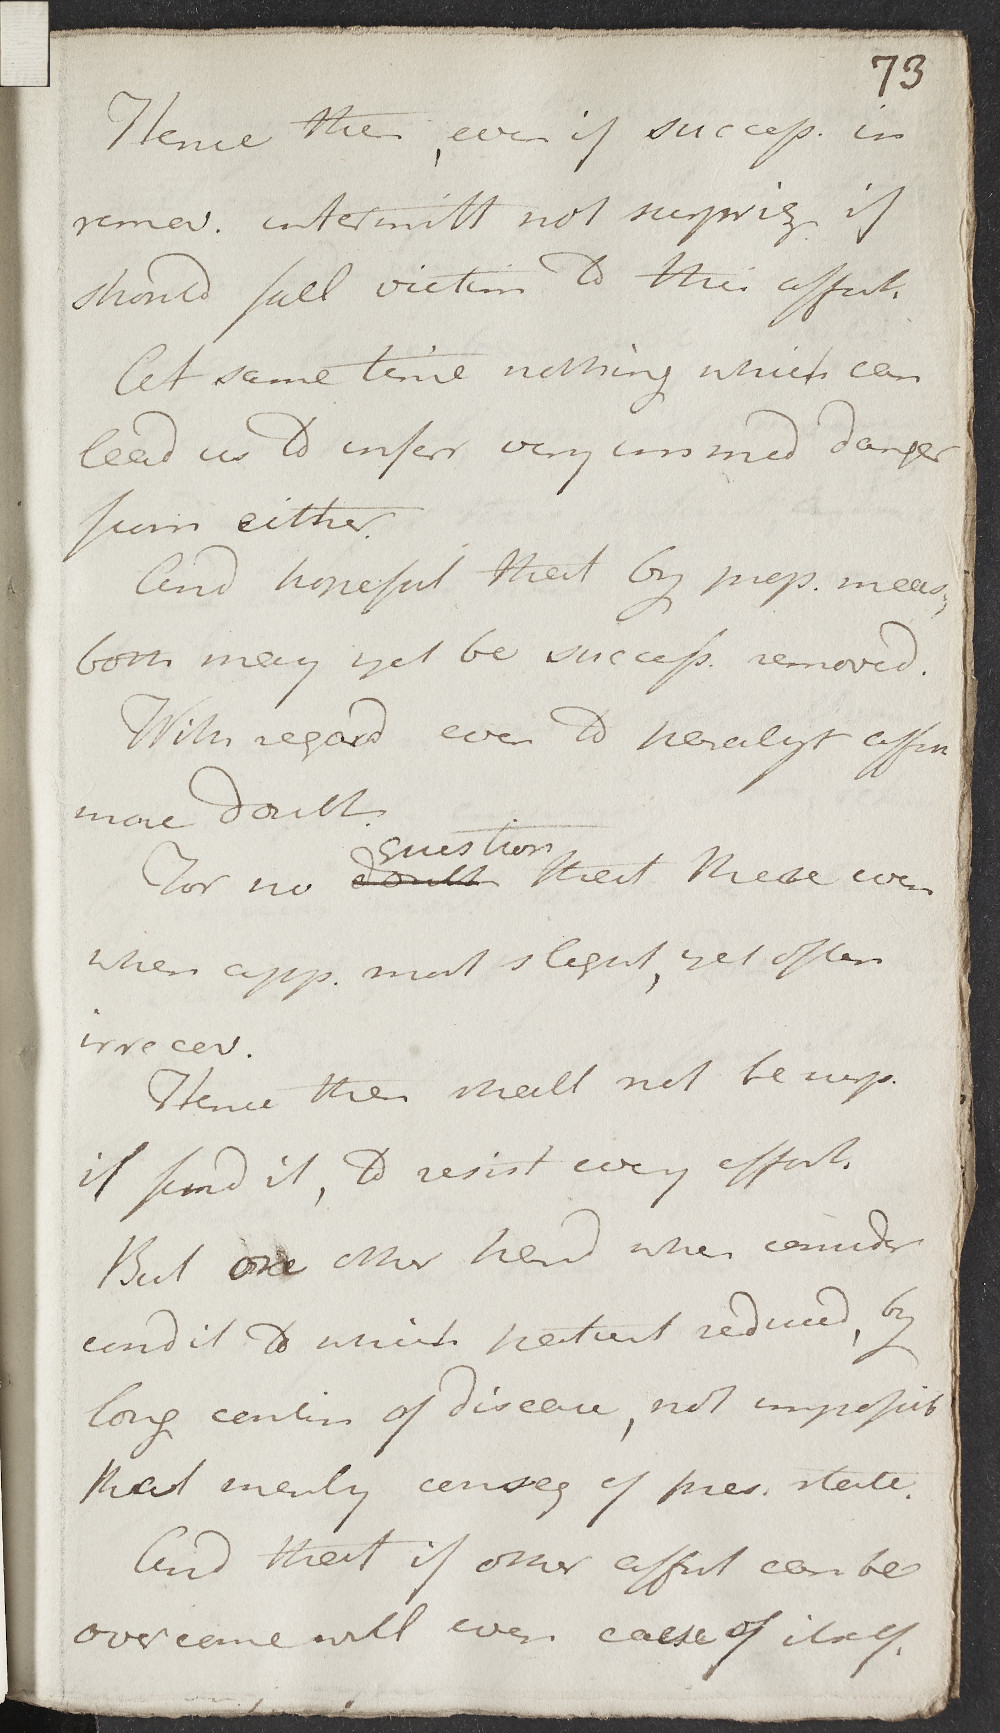 73
Hence then, even if success. in
remov. intermitt not surpriz. if
should fall victim to this affect.
At same time nothing which can
lead us to infer very immed danger
from either.
And hopeful that by prop. meas;
both may yet be success. removed.
With regard even to paralyt affn
more doubt.
question
For no doubt that these even
when app. most slight, yet often
irrecov.
Hence then shall not be surp.
if find it, to resist every effort.
But one other hand when consider
condit to which patient reduced, by
long contin of disease, not impossib
that merely conseq of pres. state.
And that if other affect can be
overcome will even cease of itself.